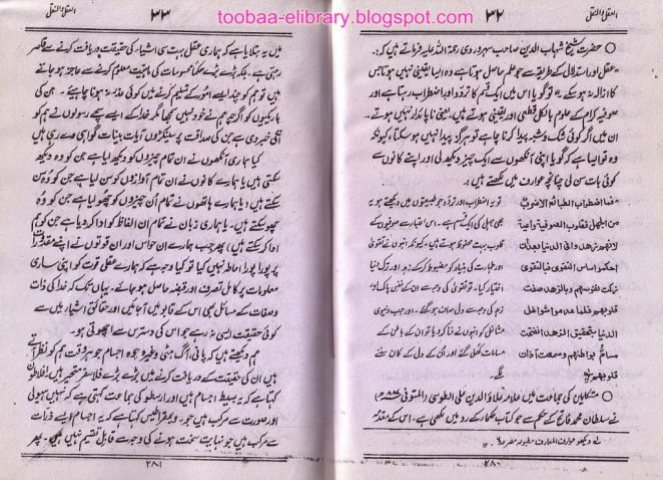 toobaa-elibrary.blogspot.com
العقل والنقل
۳۲
○ حضرت شیخ شہاب الدین صاحب سہروردی رحمۃ اللہ علیہ فرماتے ہیں کہ :۔
عقل اور استدلال کے طریقہ سے جو علم حاصل ہوتا ہے وہ ایسا یقینی نہیں ہوتا جس
کا ازالہ نہ ہو سکے۔ تو گویا اس میں ایک قسم کا تردد اور اضطراب رہتا ہے اور
صوفیہ کرام کے علوم بالکل قطعی اور یقینی ہوتے ہیں۔ یعنی ناپائدار نہیں ہوتے۔
ان میں اگر کوئی شک و شبہ پیدا کرنا چاہے تو ہرگز پیدا نہیں ہو سکتا، کیونکہ
وہ تو ایسا ہے کہ گویا اپنی آنکھوں سے ایک چیز دیکھ لی اور اپنے کانوں سے
کوئی بات سن لی چنانچہ عوارف میں لکھتے ہیں۔
فما اضطراب الطبائع الا لضرب
من الجهل فقلوب الصوفية واعية
لانهم زهدوا فى الدنيا بعد ان
احكموا اساس التقوى فبالتقوى
زكت نفوسهم وبالزهد صفت
قلوبهم فلما عدموا شواغل
الدنيا بتحقيق الزهد انفتحت
مسام بواطنهم وسمعت آذان
قلوبهم
تو یہ اضطراب اور تردد جو طبیعتوں میں دیکھتے ہو یہ
بھی جہل کی ایک قسم ہے۔ اس اعتبار سے صوفیوں کے
قلوب بہت محفوظ ہوتے ہیں۔ کیونکہ انہوں نے تقویٰ
اور طہارت کی بنیاد کو مضبوط کر کے زہد اور ترک دنیا
اختیار کیا۔ تو تقویٰ کی وجہ سے ان کے نفس پاک اور
زہد کی وجہ سے دل صاف ہو گئے۔ اور جب دنیوی
مشاغل کو انہوں نے فنا کر دیا تو ان کے باطن کے
مسامات کھل گئے اور ان کے دل کے کان سننے
لگے
○ متکلمین کی جماعت میں علامہ علاؤ الدین علی الطوسی المتوفی
نے سلطان محمد فاتح کے حکم سے جو کتاب حکماء کے رد میں لکھی ہے۔ اس کے مقدمہ
لہ دیکھو عوارف المعارف مطبوعہ مصر
۲۸۰
العقل والنقل
۳۳
میں یہ بتلایا ہے کہ ہماری عقل بہت سی اشیاء کی حقیقت دریافت کرنے سے قاصر
رہتی ہے۔ بلکہ بڑے بڑے حکماء محسوسات کی ماہیت معلوم کرنے سے عاجز ہو جاتے
ہیں تو ہم کو چند ایسے امور کے تسلیم کرنے میں کوئی عذر نہ ہونا چاہیے۔ جن کی
باریکیوں کو اگرچہ ہم نے خود نہیں سمجھا مگر خدا کے ایسے سچے رسولوں نے ہم کو
انکی خبر دی ہے جن کی صداقت پر سینکڑوں آیات بینات گواہی دے رہی ہیں
کیا ہماری آنکھوں نے ان تمام چیزوں کو دیکھ لیا ہے جن کو وہ دیکھ
سکتی ہیں یا ہمارے کانوں نے ان تمام آوازوں کو سن لیا ہے جن کو وہ سن
سکتے ہیں۔ یا ہمارے ہاتھوں نے تمام ان چیزوں کو چھو لیا ہے جن کو وہ
چھو سکتے ہیں۔ یا ہماری زبان نے تمام ان الفاظ کو ادا کر دیا ہے جن کو ہم
ادا کر سکتے ہیں) پھر جب ہمارے ان حواس اور ان قوتوں نے اپنے مقدورات
پر پورا پورا احاطہ نہیں کیا تو کیا وجہ ہے کہ ہمارے عقلی قوت کو اپنی ساری
معلومات پر کامل تصرف اور قبضہ حاصل ہو جائے۔ یہاں تک کہ خدا کی ذات
و صفات کے مسائل بھی اس کے قابو میں آجائیں اور حقائق اشیاء میں سے
کوئی حقیقت ایسی نہ رہے جو اس کی دسترس سے اچھوتی ہو۔
ہم دیکھتے ہیں کہ پانی، آگ، مٹی وغیرہ جو اجسام جو ہر وقت ہم کو نظر آتے
ہیں ان کی حقیقت کے دریافت کرنے میں بڑے بڑے فلاسفر متحیر ہیں۔ افلاطون
کہتا ہے کہ یہ بسیط اجسام ہیں اور ارسطو کی جماعت کہتی ہے کہ نہیں ہیولیٰ
اور صورت سے مرکب ہیں۔ جو دیمقراطیس کہتا ہے کہ یہ اجسام ایسے ذرات
سے مرکب ہیں جو نہایت سخت ہونے کی وجہ سے قابل تقسیم نہیں ہیں۔ پھر
۲۸۱